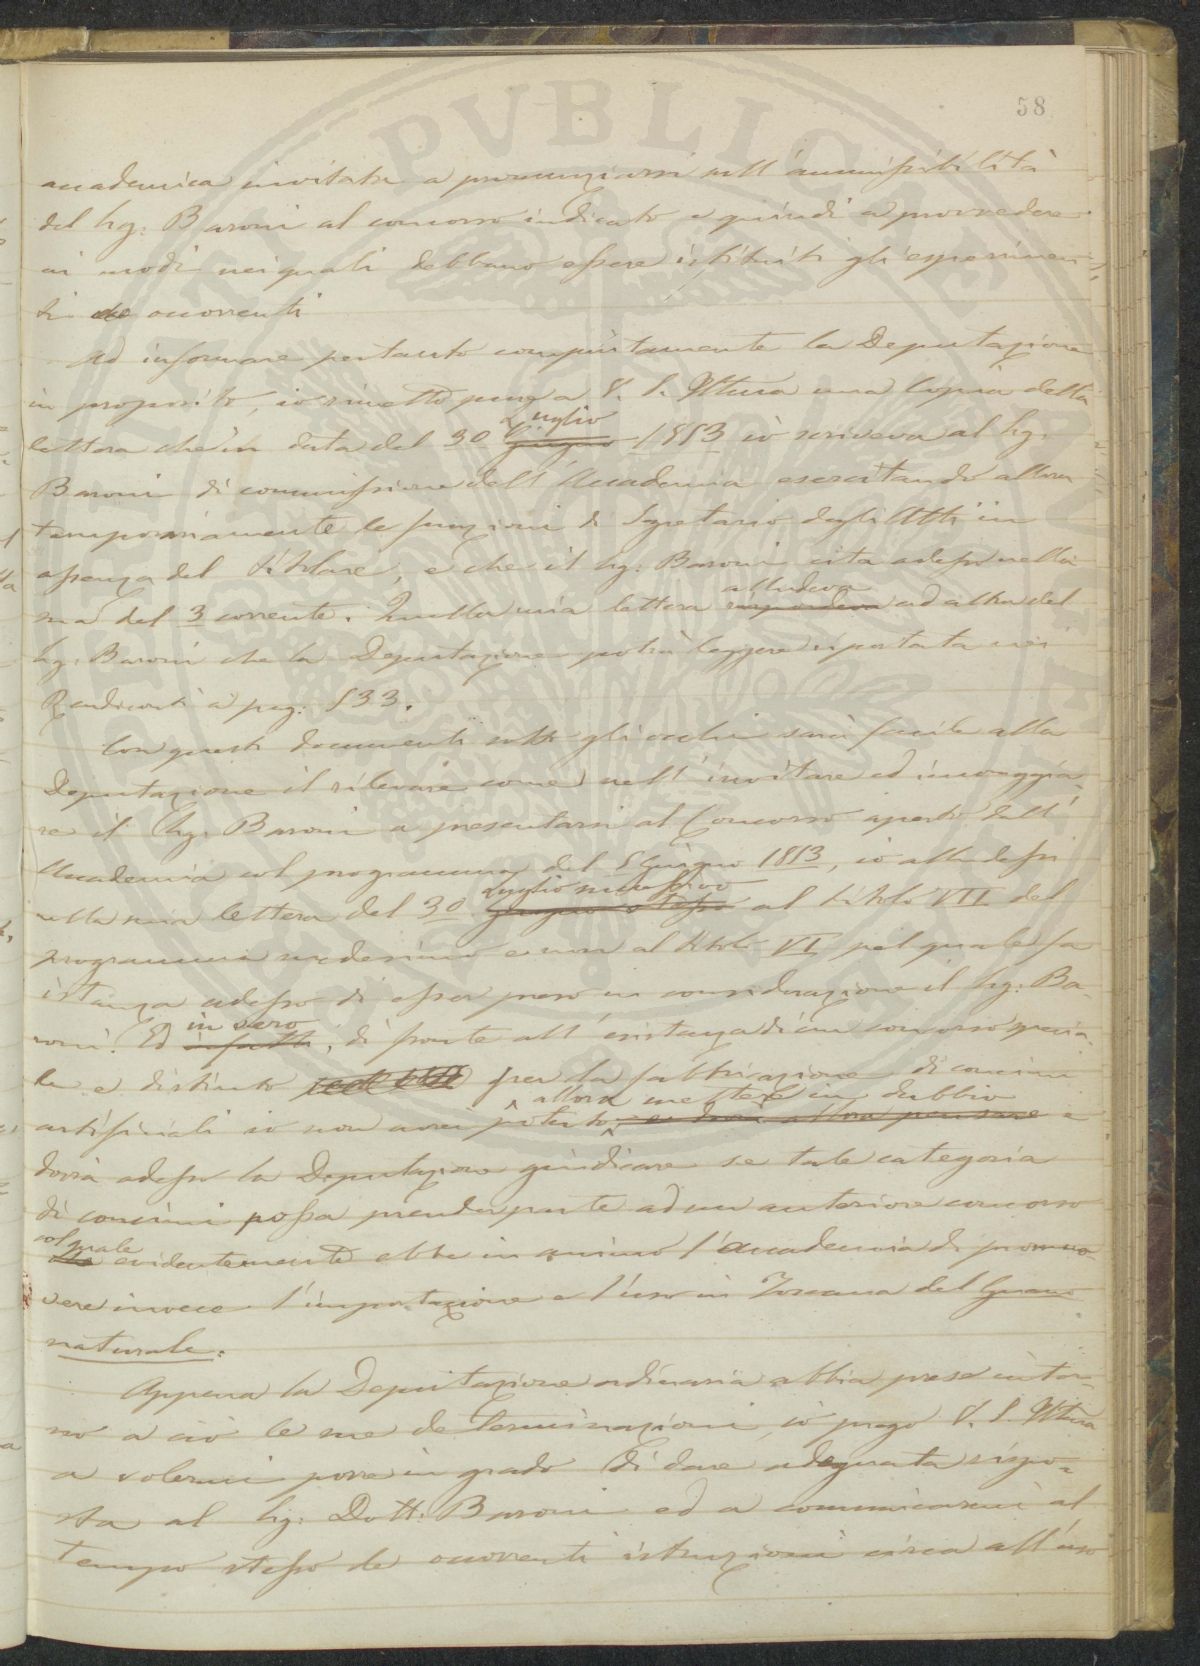 58
accademica invitata a pronunziarsi sull'ammissibilità
del Sig: Baroni al concorso indicato e quindi a provvedere
ai modi nei quali debbano essere istituiti gli esperimen-
ti occorrenti
Ad informare pertanto compiutamente la Deputazione
in proposito, io rimetto a V. S. Illma una Copia della
Luglio
lettera che in data del 30 Giugno 1853 io scriveva al Sig:
Baroni di commissione dell'Accademia esercitando allora
temporariamente le funzioni di Segretario degli Atti in
assenza del titolare, e che il Sig: Baroni cita adesso nella
alludeva
sua del 3 corrente. Quella mia lettera rispondeva ad altra del
Sig: Baroni che la Deputazione potrà leggere riportata nei
Rendiconti a pag: 533.
Con questi documenti sotto gli occhi sarà facile alla
Deputazione il rilevare come nell'invitare ed incoraggia-
re il Sig: Baroni a presentarsi al Concorso aperto dall'
Accademia col programma del 5 Giugno 1853, io alludessi
Luglio successivo
nella mia lettera del 30 giugno stesso al titolo VII del
programma medesimo e non al titolo VI pel quale fa
istanza adesso di esser preso in considerazione il Sig: Ba-
in vero
roni. Ed infatti, di fronte all'esistenza di un concorso specia-
le e distinto per la fabbricazione di concimi
allora mettere in dubbio
artificiali io non avrei potuto, e
dovrà adesso la Deputazione giudicare se tale categoria
di concimi possa prender parte ad un anteriore concorso
col quale
evidentemente ebbe in animo l'Accademia di promuo-
vere invece l'importazione e l'uso in Toscana del Guano
naturale.
Appena la Deputazione ordinaria abbia prese intor-
no a ciò le sue determinazioni, io prego V. S. Illma
a volermi porre in grado di dare adeguata rispo-
sta al Sig: Dott: Baroni ed a comunicarmi al
tempo stesso le occorrenti istruzioni circa all'uso